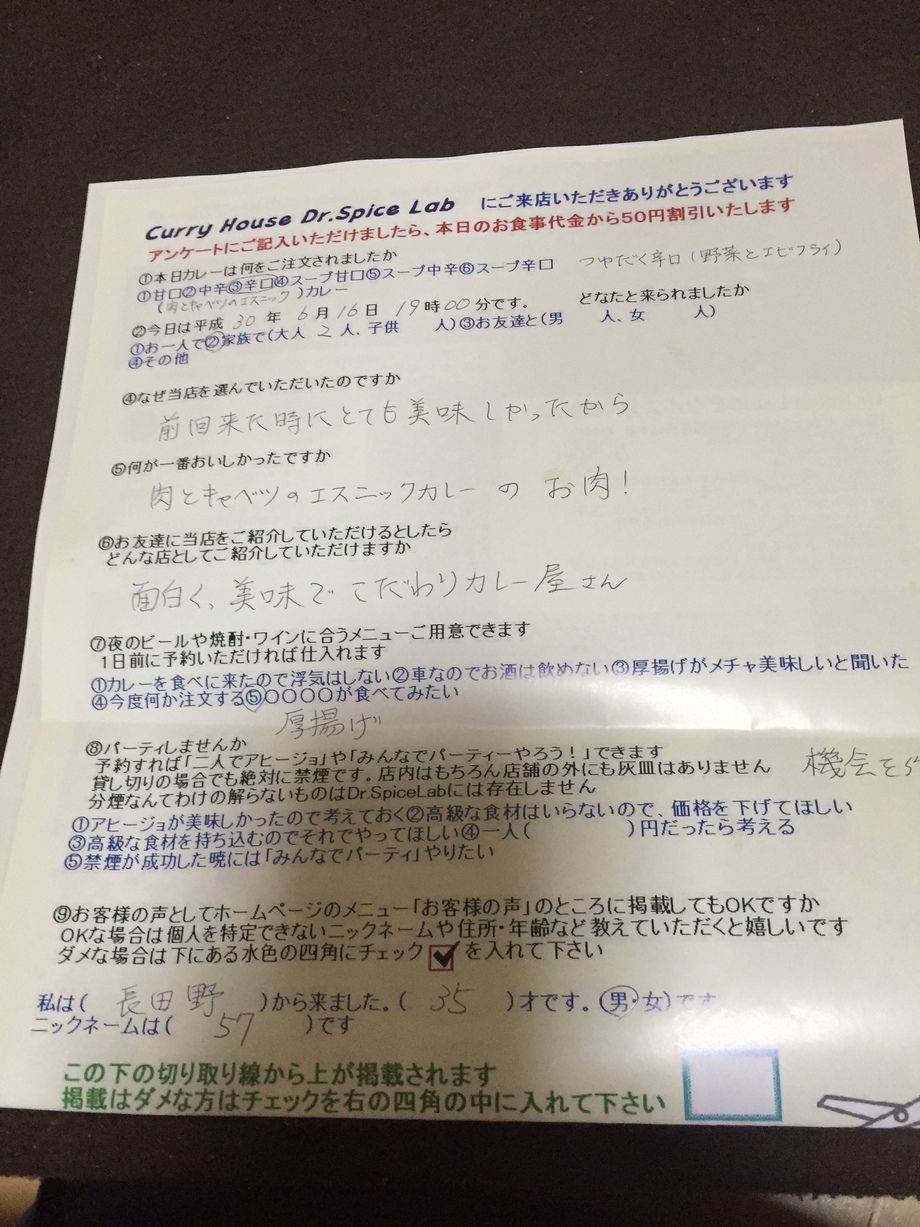 Curry House Dr.Spice Lab にご来店いただきありがとうございます
アンケートにご記入いただけましたら、本日のお食事代金から50円割引いたします
①本日カレーは何をご注文されましたか
①甘口②中辛③辛口④スープ甘口⑤スープ中辛⑥スープ辛口 つゆだく辛口(野菜とエビフライ)
(肉とキャベツのエスニック)カレー
②今日は平成 30 年 6 月 16 日 19 時 00 分です。 どなたと来られましたか
①お一人で②家族で(大人 2 人、子供 人)③お友達と(男 人、女 人)
④その他
④なぜ当店を選んでいただいたのですか
前回来た時にとても美味しかったから
⑤何が一番おいしかったですか
肉とキャベツのエスニックカレーの お肉!
⑥お友達に当店をご紹介していただけるとしたら
どんな店としてご紹介していただけますか
面白く、美味でこだわりカレー屋さん
⑦夜のビールや焼酎・ワインに合うメニューご用意できます
1日前に予約いただければ仕入れます
①カレーを食べに来たので浮気はしない②車なのでお酒は飲めない③厚揚げがメチャ美味しいと聞いた
④今度何か注文する⑤〇〇〇〇が食べてみたい
厚揚げ
⑧パーティしませんか
予約すれば「二人でアヒージョ」や「みんなでパーティーやろう!」できます
貸し切りの場合でも絶対に禁煙です。店内はもちろん店舗の外にも灰皿はありません 機会を
分煙なんてわけの解らないものはDr.SpiceLabには存在しません
①アヒージョが美味しかったので考えておく②高級な食材はいらないので、価格を下げてほしい
③高級な食材を持ち込むのでそれでやってほしい④一人( )円だったら考える
⑤禁煙が成功した暁には「みんなでパーティ」やりたい
⑨お客様の声としてホームページのメニュー「お客様の声」のところに掲載してもOKですか
OKな場合は個人を特定できないニックネームや住所・年齢など教えていただくと嬉しいです
ダメな場合は下にある水色の四角にチェック を入れて下さい
私は( 長田野 )から来ました。( 35 )才です。(男・女)です
ニックネームは( 57 )です
この下の切り取り線から上が掲載されます
掲載はダメな方はチェックを右の四角の中に入れて下さい